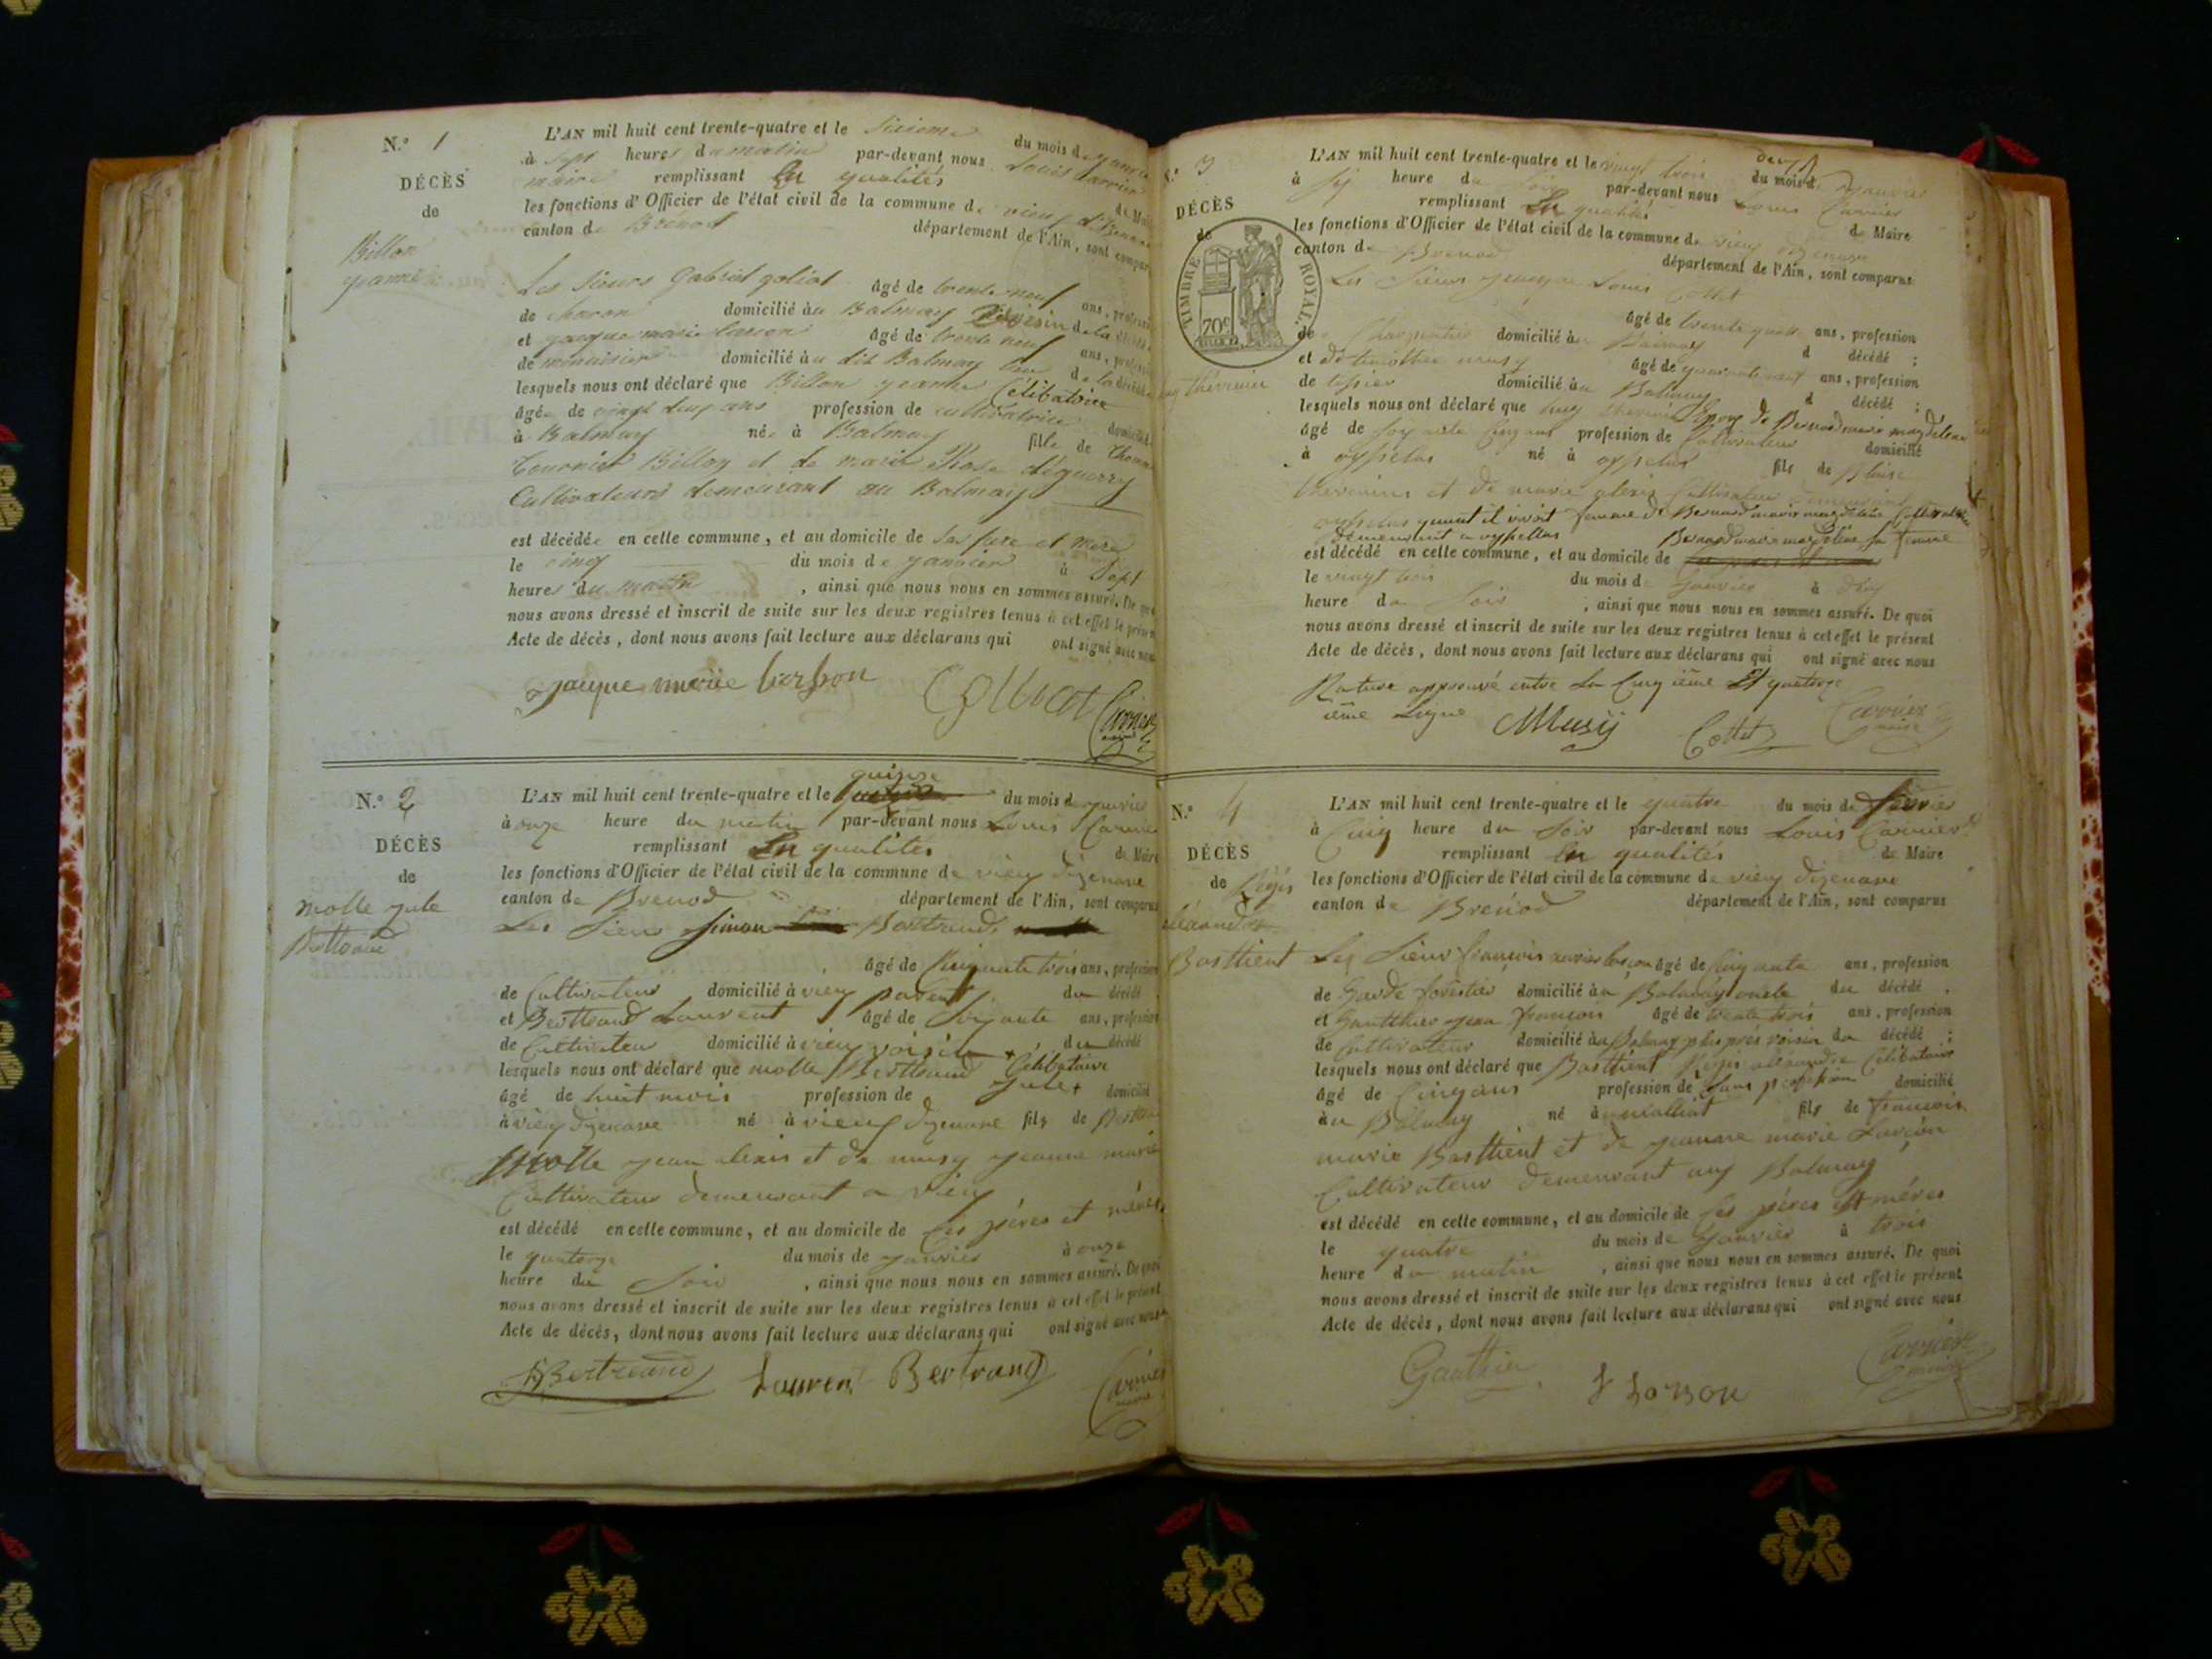 N.º 1
DÉCÈS
de
Billon
jeanne
L'AN mil huit cent trente-quatre et le sixieme du mois de janvier
à sept heures du matin par-devant nous Louis Carrier
maire remplissant en qualités de Maire
les fonctions d'Officier de l'état civil de la commune de vieux d'Izenave
canton de Brénod département de l'Ain, sont comparus
Les sieurs Gabriel goliat âgé de trente neuf ans, profession
de charon domicilié au Balmay voisin de la décédée
et jacque marie larson âgé de trente neuf ans, profession
de menuisier domicilié au dit Balmay de la décédée
lesquels nous ont déclaré que Billon jeanne Célibataire
âgée de vingt deux ans profession de cultivatrice domiciliée
à Balmay née à Balmay fille de thomas
Billon et de marie Rose
Cultivateurs demeurant au Balmay
est décédée en cette commune, et au domicile de ses père et mère
le cinq du mois de janvier à sept
heures du matin, ainsi que nous nous en sommes assuré. De quoi
nous avons dressé et inscrit de suite sur les deux registres tenus à cet effet le présent
Acte de décès, dont nous avons fait lecture aux déclarans qui ont signé avec nous
jacque marie larson Carrier
N.º 2
DÉCÈS
de
molle jule
Berttrand
L'AN mil huit cent trente-quatre et le quinze du mois de janvier
à onze heure du matin par-devant nous Louis Carrier
remplissant en qualités de Maire
les fonctions d'Officier de l'état civil de la commune de vieux dizenave
canton de Brenod département de l'Ain, sont comparus
Les Sieur simon Bertrand
âgé de Cinquante trois ans, profession
de Cultivateur domicilié à vieux parent du décédé
et Berttrand Laurent âgé de soixante ans, profession
de Cultivateur domicilié à vieux voisin du décédé
lesquels nous ont déclaré que molle Berttrand Célibataire
âgé de huit mois profession de jule domicilié
à vieux dizenave né à vieux dizenave fils de
Molle jean alexis et de musy jeanne marie
Cultivateur demeurant a vieux
est décédé en cette commune, et au domicile de ses pères et mères
le quatorze du mois de janvier à onze
heure du soir, ainsi que nous nous en sommes assuré. De quoi
nous avons dressé et inscrit de suite sur les deux registres tenus à cet effet le présent
Acte de décès, dont nous avons fait lecture aux déclarans qui ont signé avec nous
Bertrand Laurent Bertrand Carrier
maire
N.º 3
DÉCÈS
de
thévenin
TIMBRE ROYAL
70c
L'AN mil huit cent trente-quatre et le vingt trois du mois de janvier
à six heure du soir par-devant nous Louis Carrier
remplissant en qualités de Maire
les fonctions d'Officier de l'état civil de la commune de vieux dizenave
canton de Brenod département de l'Ain, sont comparus
Les Sieurs Louis Cottet
âgé de trente quatre ans, profession
de Charpentier domicilié au Balmay d décédé;
et de timothée musy âgé de quarante neuf ans, profession
de tissier domicilié au Balmay d décédé;
lesquels nous ont déclaré que thevenin Epoux de Bernard marie magdeleine
âgé de soixante cinq ans profession de Cultivateur domicilié
à né à fils de Blaise
thevenin et de marie alexis Cultivateur demeurant
quant il vivoit femme de Bernard marie magdeleine
demeurant a Bernard marie magdeleine sa femme
est décédé en cette commune, et au domicile de
le vingt trois du mois de janvier à dix
heure du soir, ainsi que nous nous en sommes assuré. De quoi
nous avons dressé et inscrit de suite sur les deux registres tenus à cet effet le présent
Acte de décès, dont nous avons fait lecture aux déclarans qui ont signé avec nous
Rature approuvé entre la Cinq ième Et quatorze
ième Ligne Musy Cottet Carrier
maire
N.º 4
DÉCÈS
de Régis
aléxandre
Basttient
L'AN mil huit cent trente-quatre et le quatre du mois de février
à Cinq heure du soir par-devant nous Louis Carrier
remplissant en qualités de Maire
les fonctions d'Officier de l'état civil de la commune de vieux dizenave
canton de Brénod département de l'Ain, sont comparus
Les Sieur françois xavier larçon âgé de Cinquante ans, profession
de Garde forestier domicilié au Balmay oncle du décédé.
et Gautthier jean françois âgé de trente trois ans, profession
de Cultivateur domicilié au Balmay plus près voisin du décédé;
lesquels nous ont déclaré que Basttient Régis aléxandre Célibataire
âgé de Cinq ans profession de sans profession domicilié
au Balmay né à fils de françois
marie Basttient et de jeanne marie Larçon
Cultivateur demeurant aux Balmay
est décédé en cette commune, et au domicile de ses pères et mères
le quatre du mois de janvier à trois
heure du matin, ainsi que nous nous en sommes assuré. De quoi
nous avons dressé et inscrit de suite sur les deux registres tenus à cet effet le présent
Acte de décès, dont nous avons fait lecture aux déclarans qui ont signé avec nous
Gauthier f Larson Carrier
maire